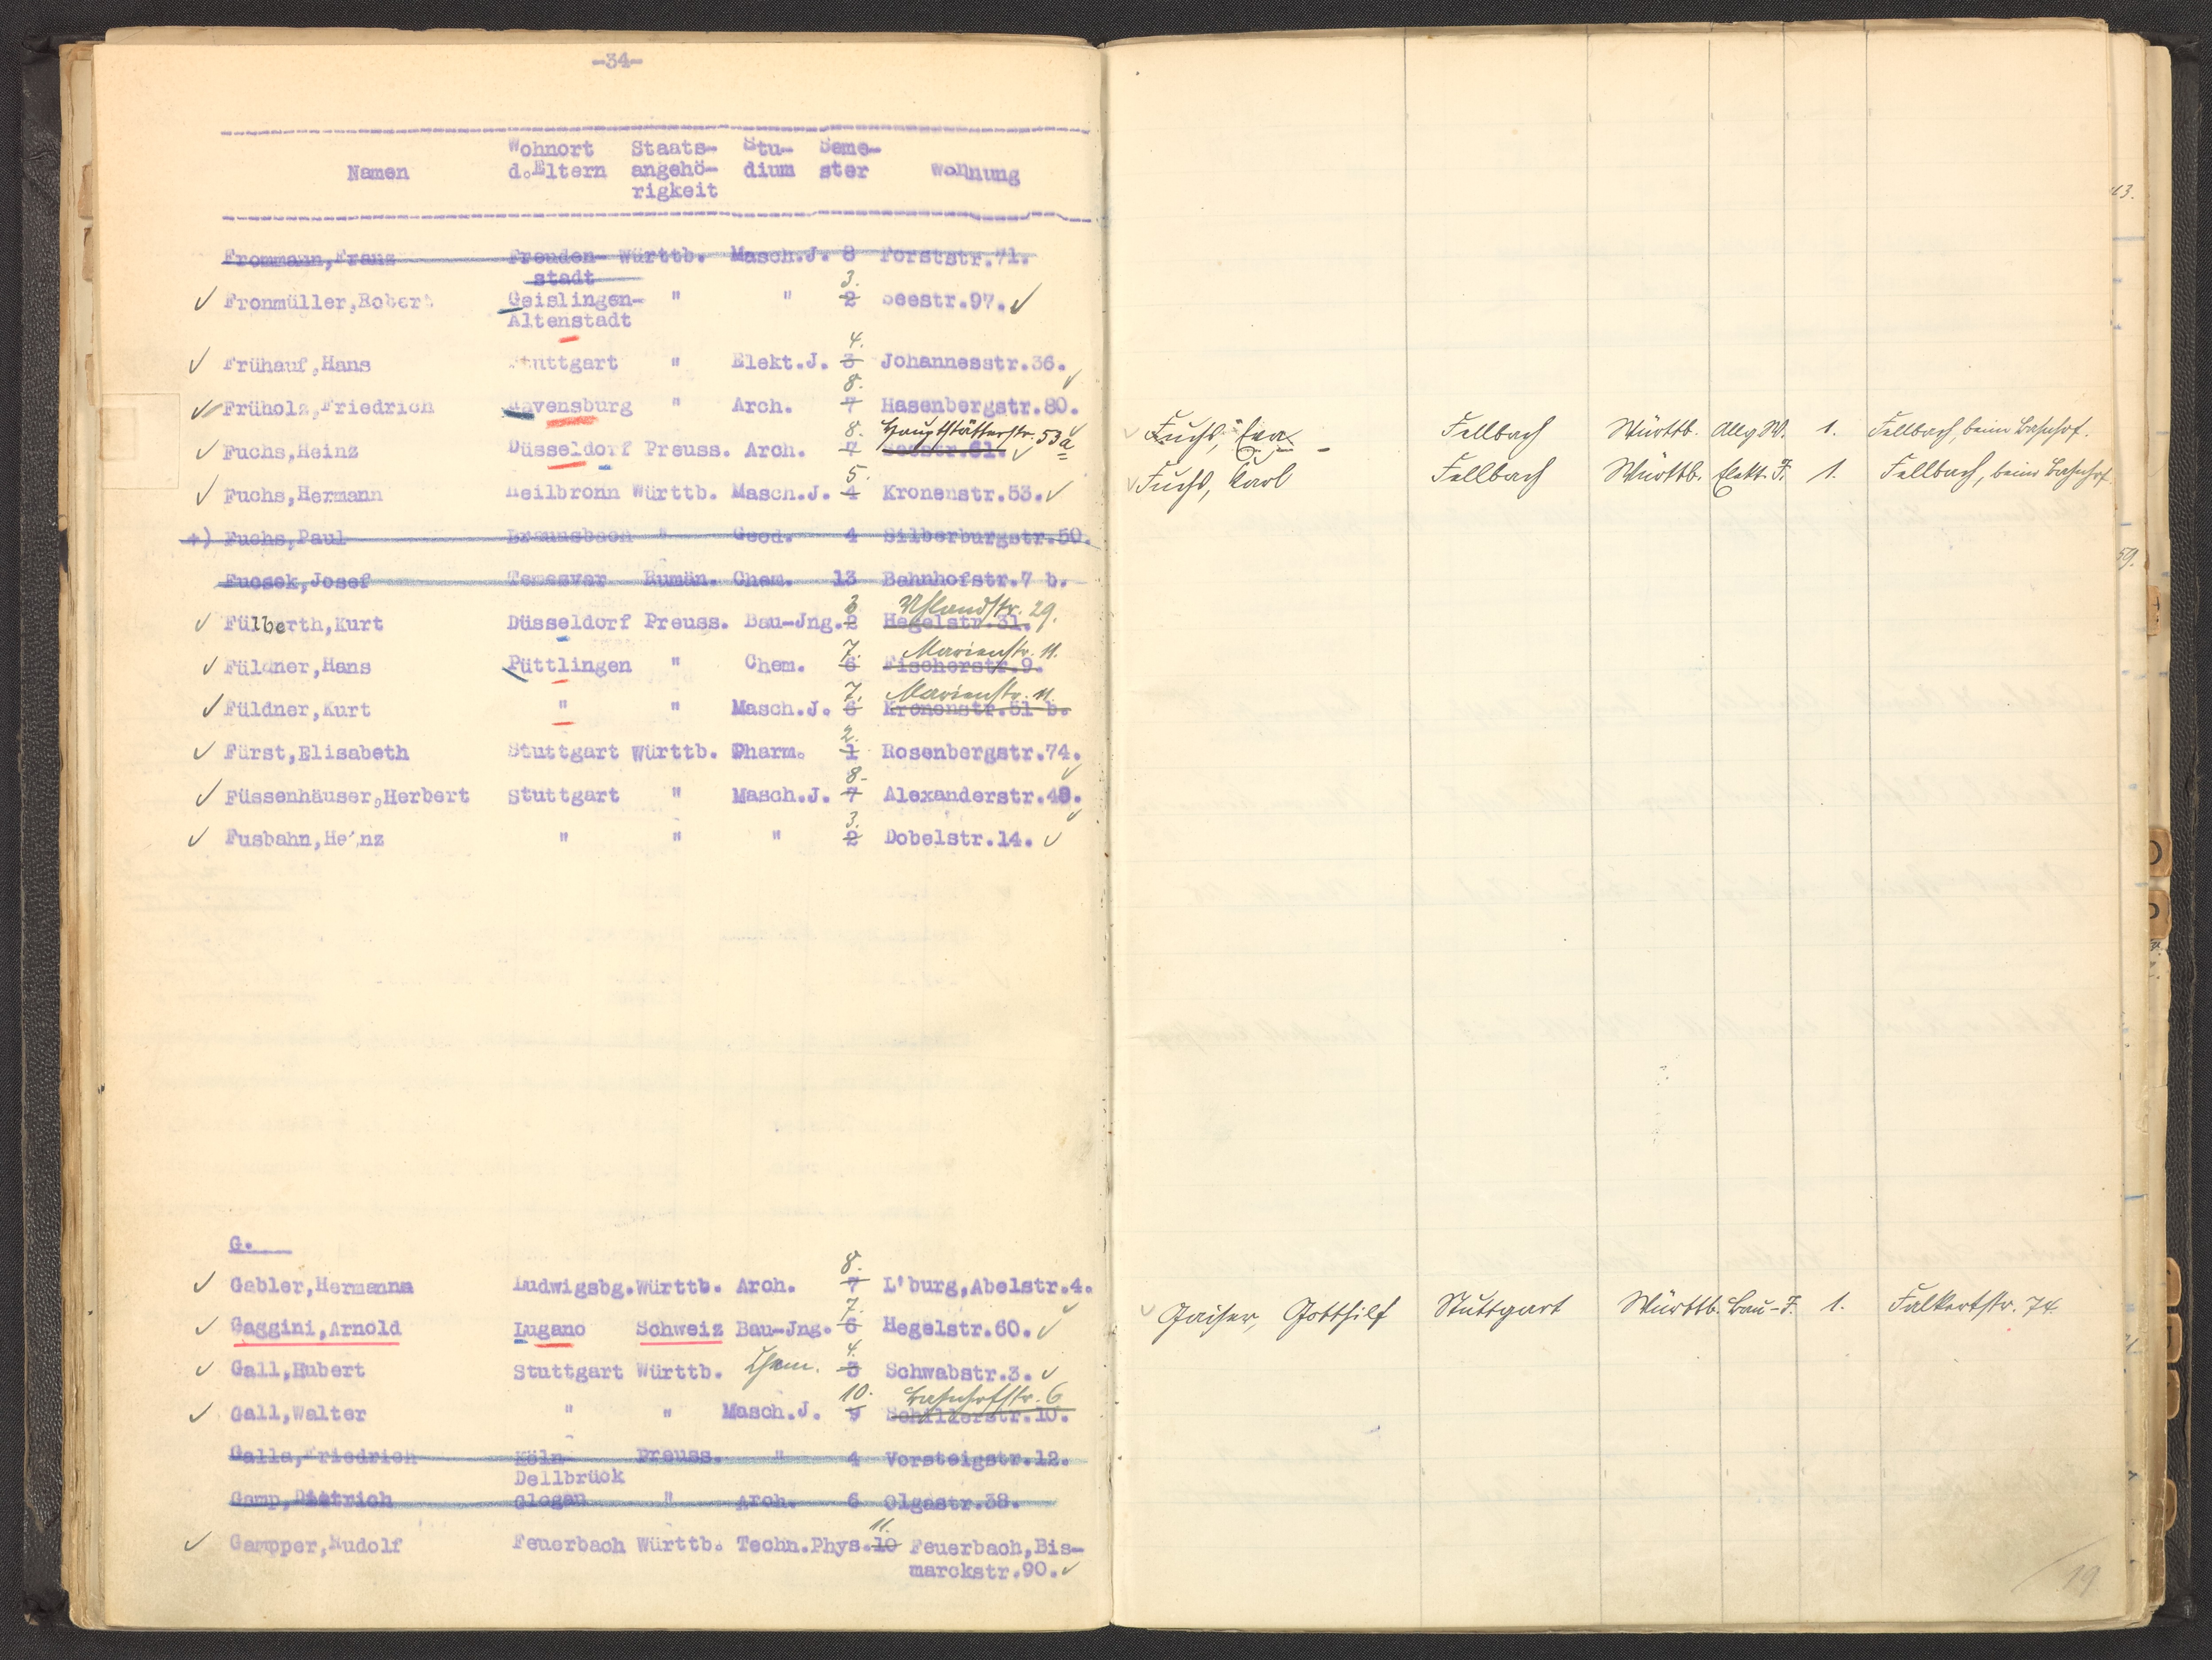 -34-
Namen Wohnort d.Eltern Staats-angehö-rigkeit Stu-dium Seme-ster Wohnung
Frommann,Franz Freuden- Württb. Masch.J. 8 Forststr.71.
stadt
3.
✓ Fronmüller,Robert Geislingen- " " 2 Seestr.97. ✓
Altenstadt
4.
✓ Frühauf,Hans Stuttgart " Elekt.J. 3 Johannesstr.36. ✓
8.
✓ Frühholz,Friedrich Ravensburg " Arch. 7 Hasenbergstr.80. ✓
8. Hauptstätterstr. 53a
✓ Fuchs,Heinz Düsseldorf Preuss. Arch. 7 Seestr.61. ✓
5.
✓ Fuchs,Hermann Heilbronn Württb. Masch.J. 4 Kronenstr.53. ✓
+) Fuchs,Paul Braunsbach " Geod. 4 Silberburgstr.50.
Fucsek,Josef Temesvar Rumän. Chem. 13 Bahnhofstr.7 b.
3 Uhlandstr. 29.
✓ Fülberth,Kurt Düsseldorf Preuss. Bau-Jng. 2 Hegelstr.31.
7. Marienstr. 11.
✓ Füldner,Hans Püttlingen " Chem. 6 Fischerstr.9.
7. Marienstr. 11.
✓ Füldner,Kurt " " Masch.J. 6 Kronenstr.51 b.
2.
✓ Fürst,Elisabeth Stuttgart Württb. Pharm. 1 Rosenbergstr.74. ✓
8.
✓ Füssenhäuser,Herbert Stuttgart " Masch.J. 7 Alexanderstr.49. ✓
3.
✓ Fusbahn,Heinz " " " 2 Dobelstr.14. ✓
G.
8.
✓ Gabler,Hermann Ludwigsbg. Württb. Arch. 7 L'burg,Abelstr.4. ✓
7.
✓ Gaggini,Arnold Lugano Schweiz Bau-Jng. 6 Hegelstr.60. ✓
4.
✓ Gall,Hubert Stuttgart Württb. Chem. 3 Schwabstr.3. ✓
10. Bahnhofstr. 6
✓ Gall,Walter " " Masch.J. 9 Schillerstr.10.
Galla,Friedrich Köln Preuss. " 4 Vorsteigstr.12.
Dellbrück
Gamp,Dietrich Glogau " Arch. 6 Olgastr.38.
11.
✓ Gampper,Rudolf Feuerbach Württb. Techn.Phys. 10 Feuerbach,Bis-
marckstr.90. ✓
✓ Fuchs, Eva Fellbach Württb. Allg W. 1. Fellbach, beim Bahnhof.
✓ Fuchs, Karl Fellbach Württb. Elekt. J. 1. Fellbach, beim Bahnhof
✓ Gaiser, Gotthilf Stuttgart Württb. Bau-J. 1. Falkertstr. 74
19